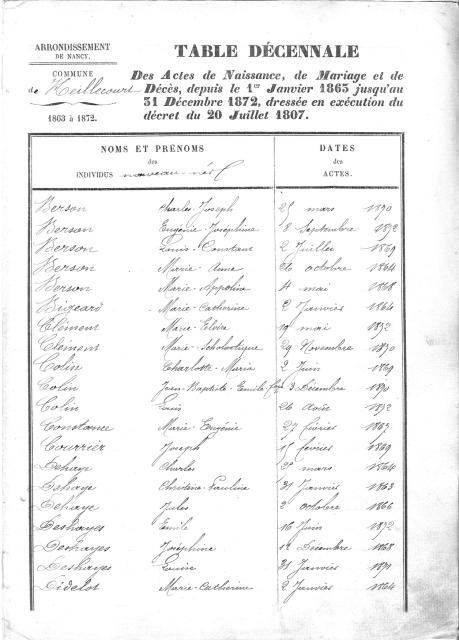 ARRONDISSEMENT
DE NANCY.
COMMUNE
de Heillecourt
1863 à 1872.
TABLE DÉCENNALE
Des Actes de Naissance, de Mariage et de
Décès, depuis le 1er Janvier 1863 jusqu'au
31 Décembre 1872, dressée en exécution du
décret du 20 Juillet 1807.
NOMS ET PRÉNOMS
des
INDIVIDUS nouveau-nés
DATES
des
ACTES.
Berson Charles-Joseph 25 mars 1870
Berson Eugénie-Joséphine 8 Septembre 1872
Berson Louis-Constant 2 Juillet 1869
Berson Marie-Anne 26 octobre 1864
Berson Marie-Appoline 4 mai 1868
Bizeard Marie-Catherine 2 Janvier 1864
Clément Marie-Elvire mai 1872
Clément Marie-Scholastique 29 Novembre 1870
Colin Charlotte-Maria 2 Juin 1869
Colin Jean-Baptiste-Emile 3 Décembre 1870
Colin Louis 26 Août 1872
Constance Marie-Eugénie 27 février 1867
Courrier Joseph 15 février 1869
Dehaye Charles mars 1864
Dehaye Christine-Pauline 31 Janvier 1863
Dehaye Jules 2 octobre 1866
Deshayes Emile 16 Juin 1872
Deshayes Joséphine 12 Décembre 1868
Deshayes Louise 31 Janvier 1871
Didelot Marie-Catherine 2 Janvier 1864